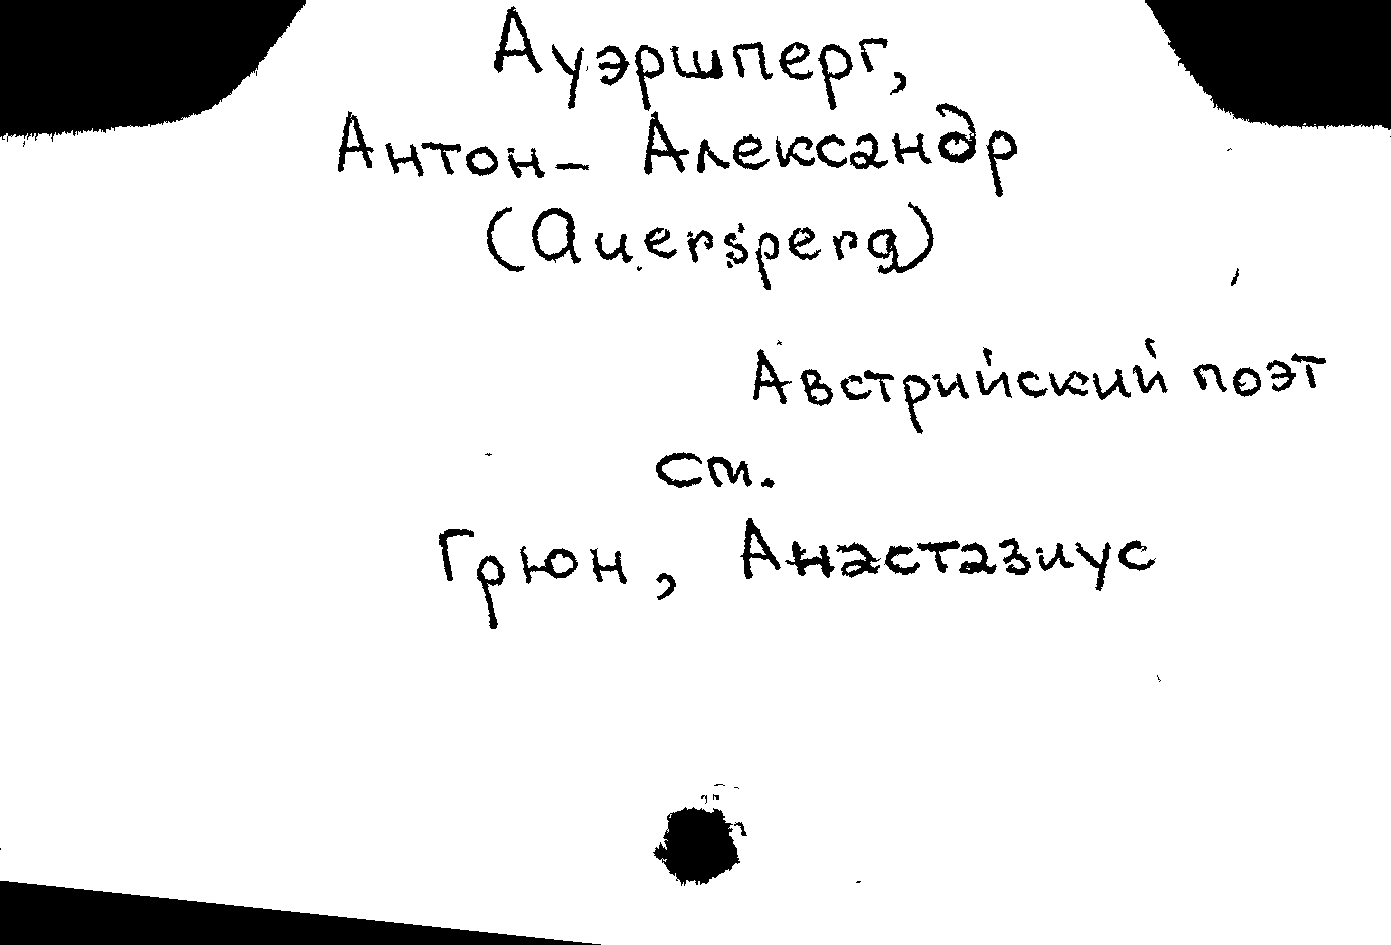 Ауэршперг,
Антон- Александр
(Auersperg)
Австрийский поэт
см.
Грюн, Анастазиус